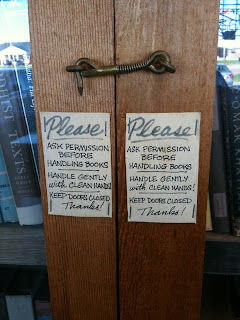 Please!
ASK PERMISSION
BEFORE
HANDLING BOOKS
HANDLE GENTLY
with CLEAN HANDS!
KEEP DOORS CLOSED
Thanks!
Please!
ASK PERMISSION
BEFORE
HANDLING BOOKS
HANDLE GENTLY
with CLEAN HANDS!
KEEP DOORS CLOSED
Thanks!
TEXTS